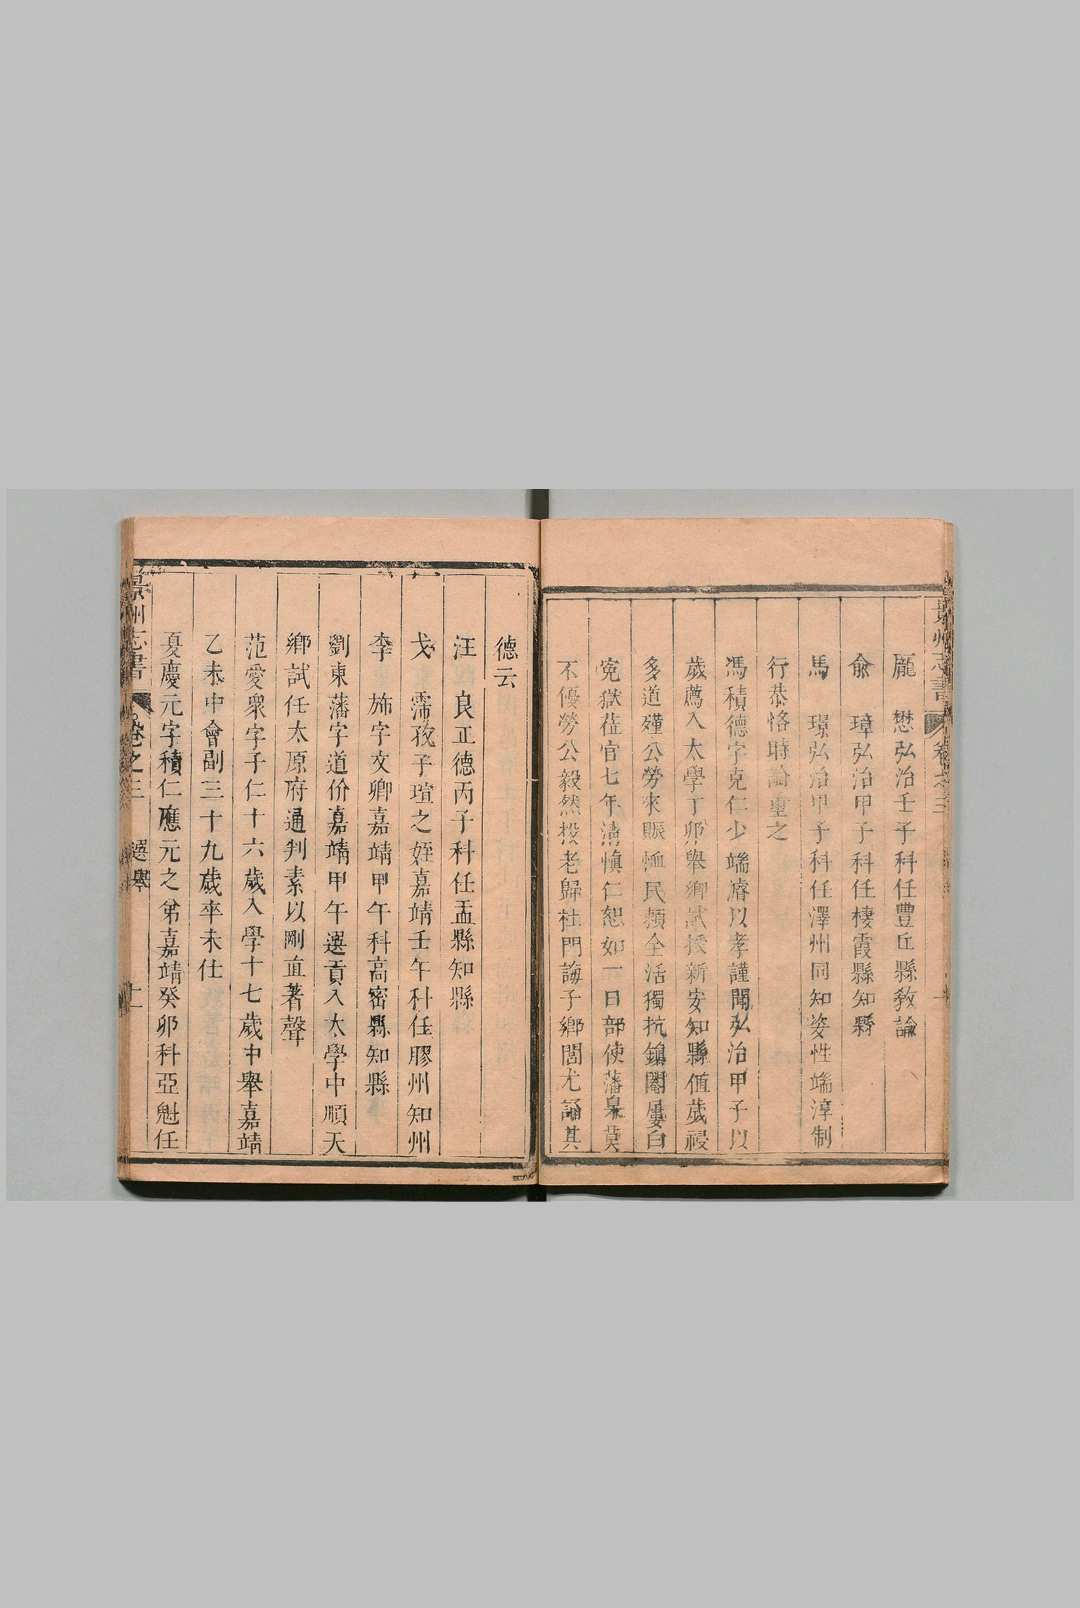 龎　懋弘治壬子科任豊丘縣教諭
俞　璋弘治甲子科任棲霞縣知縣
馬　璟弘治甲子科任澤州同知姿性端淳制
行恭恪時論重之
馮積德字克仁少端濬以孝謹聞弘治甲子以
歲薦入太學丁卯舉鄉試授新安知縣值歲祲
多道殣公勞來賑恤民頼全活獨抗鎮閹屢白
寃獄莅官七年清慎仁恕如一日部使藩臬莫
不優勞公毅然投老歸杜門誨子鄉閭尤誦其
德云
汪　良正德丙子科任盂縣知縣
戈　霈孜子瑄之姪嘉靖壬午科任膠州知州
李　斾字文卿嘉靖甲午科高密縣知縣
劉東藩字道价嘉靖甲午選貢入太學中順天
鄉試任太原府通判素以剛直著聲
范愛衆字子仁十六歲入學十七歲中舉嘉靖
乙未中會副三十九歲卒未仕
夏慶元字積仁應元之弟嘉靖癸卯科亞魁任
景州志書　卷之三　選舉　十一